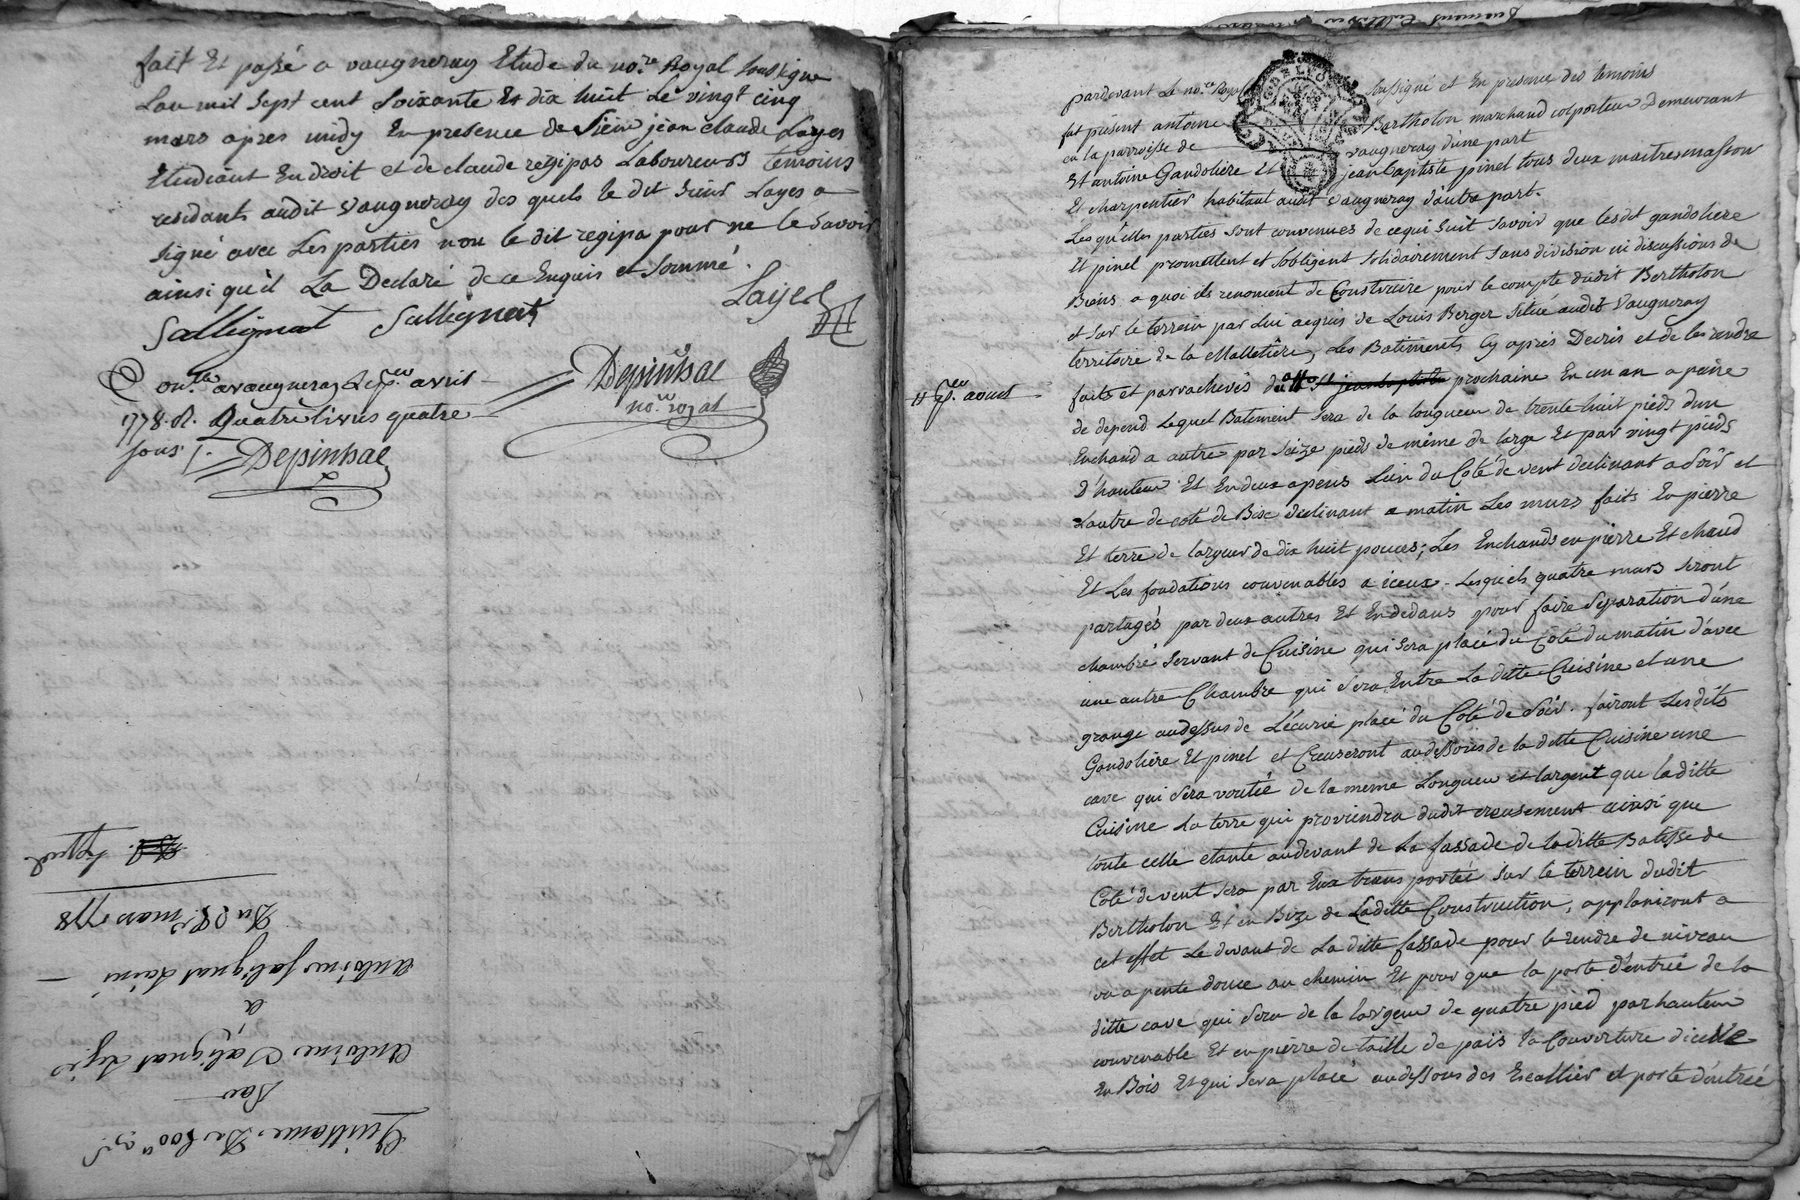 fait Et passé a vaugneray Etude du no.re Royal soussigne
Lan mil sept cent soixante Et dix huit Le vingt cinq
mars apres midy En presence de Sieur jean claude Layes
Etudiant En droit et de claude regipas Laboureurs temoins
residants audit vaugneray des quels le dit sieur Layes a
signé avec Les parties non le dit regipa pour ne le savoir
ainsi qu'il La Declaré de ce Enquis et sommé.
Sallignat Sallignat Layes
Depinhac
no.re royal
Con.lé a vaugneray Le p.er avril
1778. R. Quatre livres quatre
sous
Depinhac
Quittance De 800
Par
Antoine Salignat
a
Antoine salignat
Du 25 mars 1778
pardevant Le no.re Royal soussigné et En presence des temoins
fut présent antoine Bertholon marchand colporteur Demeurant
en la parroisse de vaugneray d'une part
Et antoine Gandoliere Et jean baptiste pinel tous deux maitres masson
Et charpentier habitant audit vaugneray d'autre part.
Lesqu'elles parties sont convenues de ce qui suit savoir que lesdit gandoliere
Et pinel promettent et s'obligent solidairement sans division ni discussions de
Biens a quoi ils renoncent de Construire pour le compte dudit Bertholon
et sur le terrein par lui acquis de Louis Berger situé audit Vaugneray
territoire de la Malletiere, Les Batiments cy après Decris et de les rendre
faits et parrachevés prochaine En un an a peine
11 aoust
de depend Lequel Batiment sera de la longueur de trente huit pieds d'un
Enchand a autre par seize pieds de même de large Et par vingt pieds
D'hauteur Et En deux apens L'un du Coté de vent declinant a soir et
L'autre de coté de Bise declinant a matin Les murs faits En pierre
Et terre de largeur de dix huit pouces; Les Enchands en pierre Et chaud
Et Les fondations convenables a iceux. Lesquels quatre murs seront
partagés par deux autres Et En dedans pour faire separation d'une
chambre servant de Cuisine qui sera placé du Coté du matin d'avec
une autre Chambre qui sera Entre La ditte Cuisine et une
grange audessus de L'écurie placé du Coté de Soir. fairont Les dits
Gandoliere Et pinel et Creuseront audessous de la ditte Cuisine une
cave qui sera voutée de la meme Longueur et largeur que la ditte
Cuisine La terre qui proviendra dudit creusement ainsi que
toute celle etante audevant de La fassade de la ditte Batisse de
Coté de vent sera par Eux transportée sur le terrein dudit
Bertholon Et en Bize de Laditte Construction, applaniront a
cet effet Le devant de La ditte fassade pour le rendre de niveau
ou a pente douce au chemin Et pour que la porte d'entrée de la
ditte cave qui sera de la largeur de quatre pied par hauteur
convenable Et en pierre de taille de païs la Couverture dicelle
En Bois Et qui sera placé audessous des Escallier et porte d'entrée